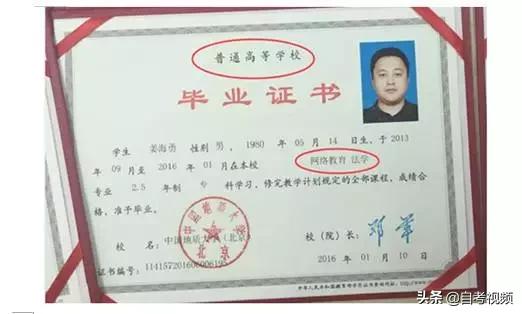 普通高等学校
毕业证书
学生 姜海勇 性别 男，1980 年 05 月 14 日生，于 2013
年 09 月至 2016 年 01 月在本校 网络教育 法学
专业 2.5 年制 专 科学习，修完教学计划规定的全部课程，成绩合
格，准予毕业。
校 名：中国地质大学（北京）
校（院）长：邓军
证书编号：114157201606006195
2016 年 01 月 10 日
中国地质大学
北京
头条 @自考视频